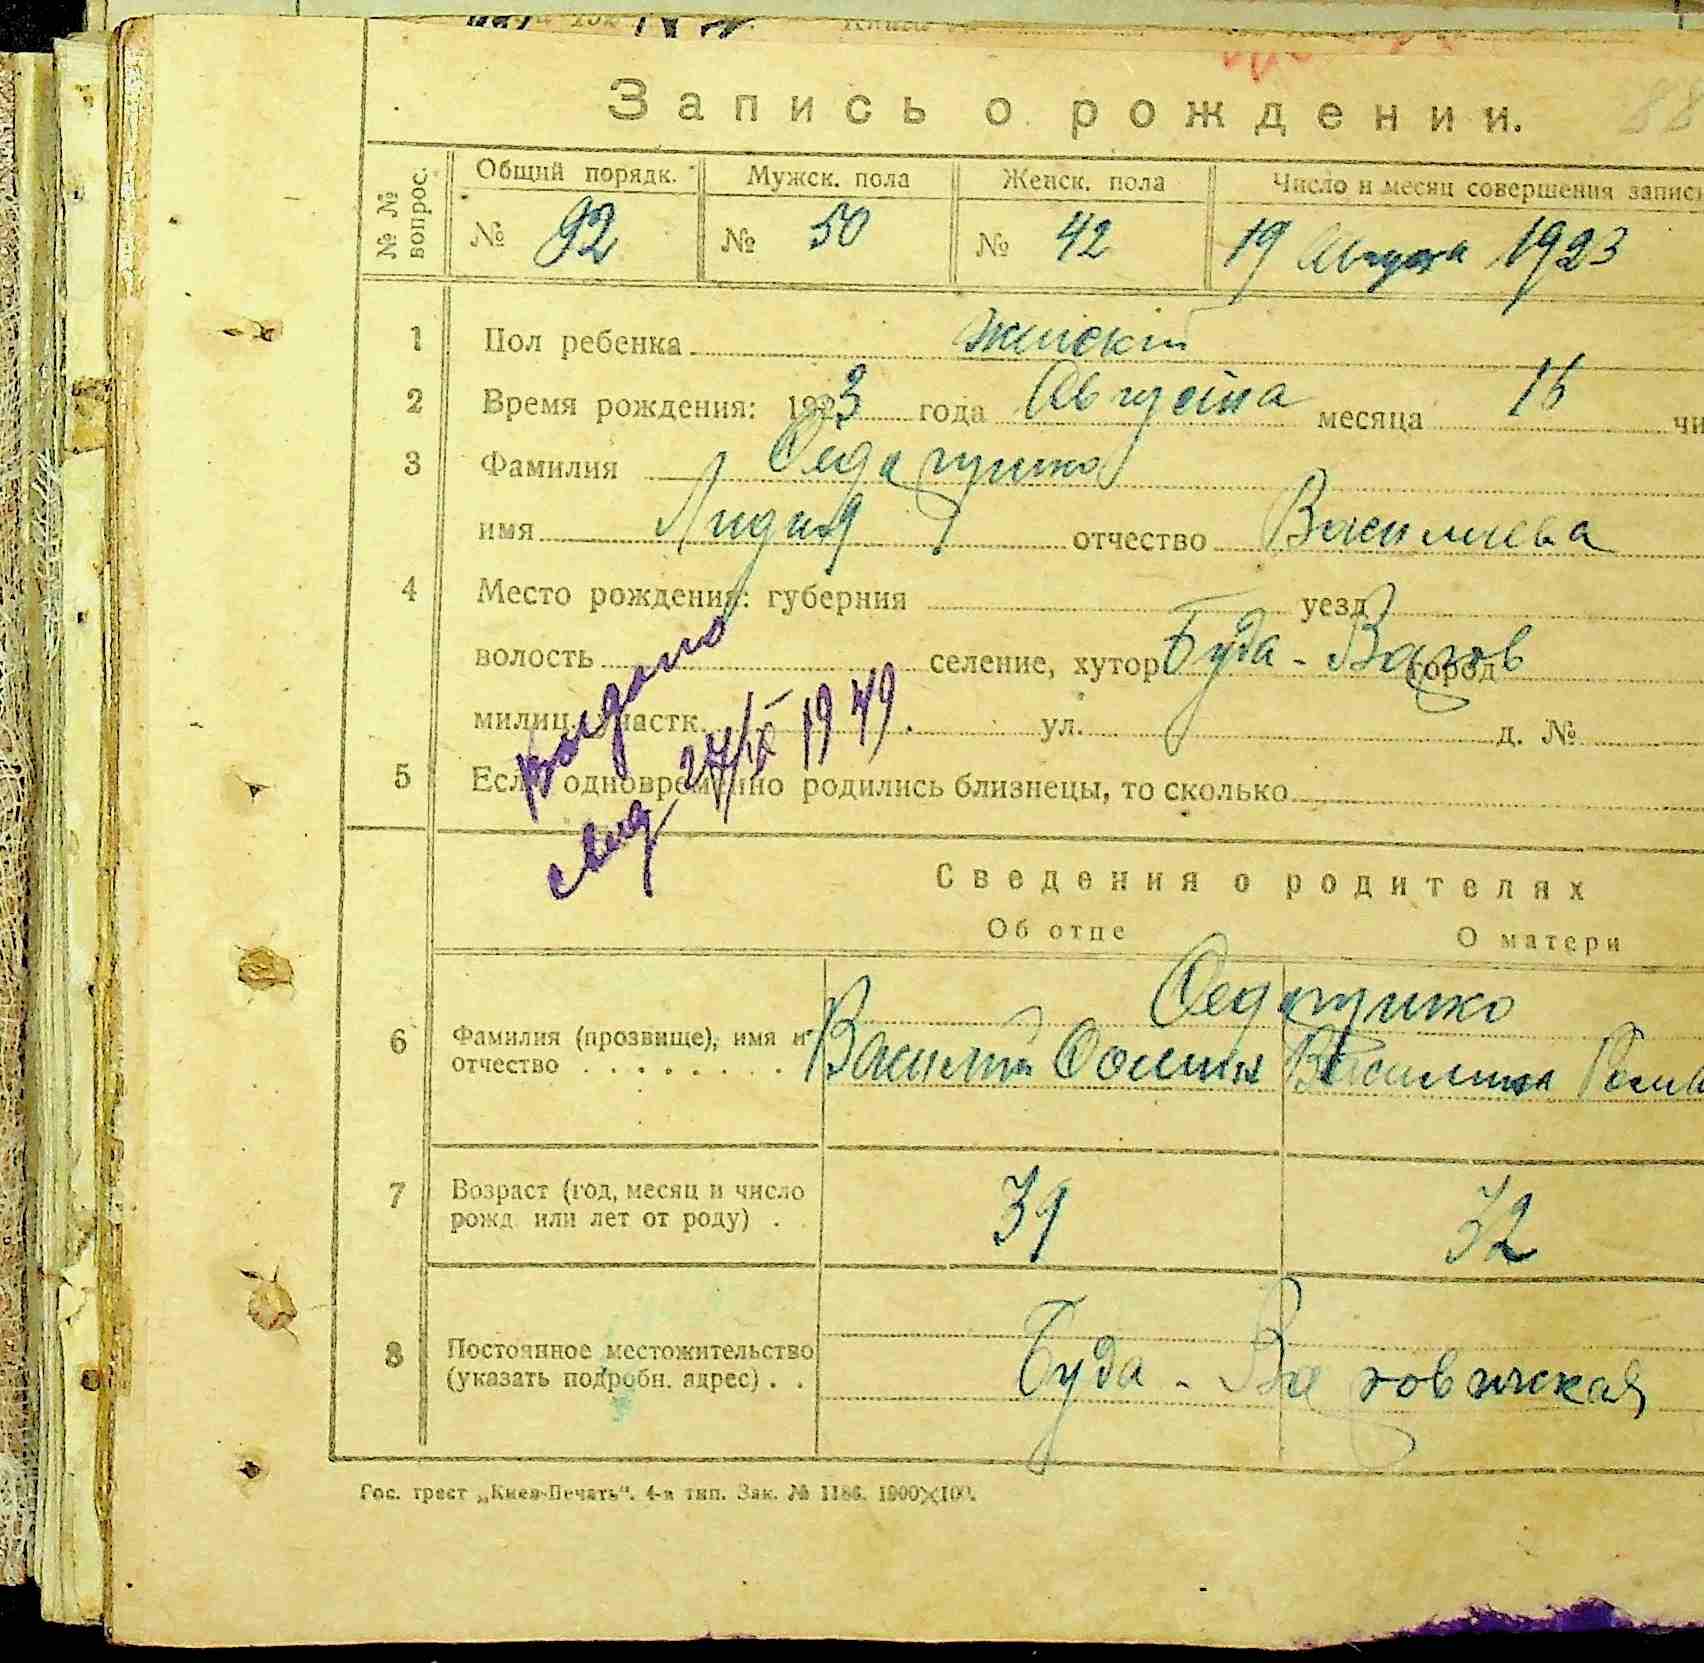 Запись о рождении.
88
№№ вопрос.
Общий порядк. Мужск. пола Женск. пола Число и месяц совершения запис
№ 92 № 50 № 42 19 Августа 1923
1 Пол ребенка женский
2 Время рождения: 1923 года Августа месяца 16 чи
3 Фамилия
имя Лидия отчество Васильева
4 Место рождения: губерния уезд
волость селение, хутор Буда - город
милиц. участк. ул. д. №
5 Если одновременно родились близнецы, то сколько
Выдано
27/IX 1949.
Сведения о родителях
Об отце О матери
6 Фамилия (прозвище), имя и
отчество . . . . . . . . Василий Василина
7 Возраст (год, месяц и число
рожд. или лет от роду) . . 39 32
8 Постоянное местожительство
(указать подробн. адрес) . . Буда -
Гос. трест „Киев-Печать". 4-я тип. Зак. № 1186. 1000×100.